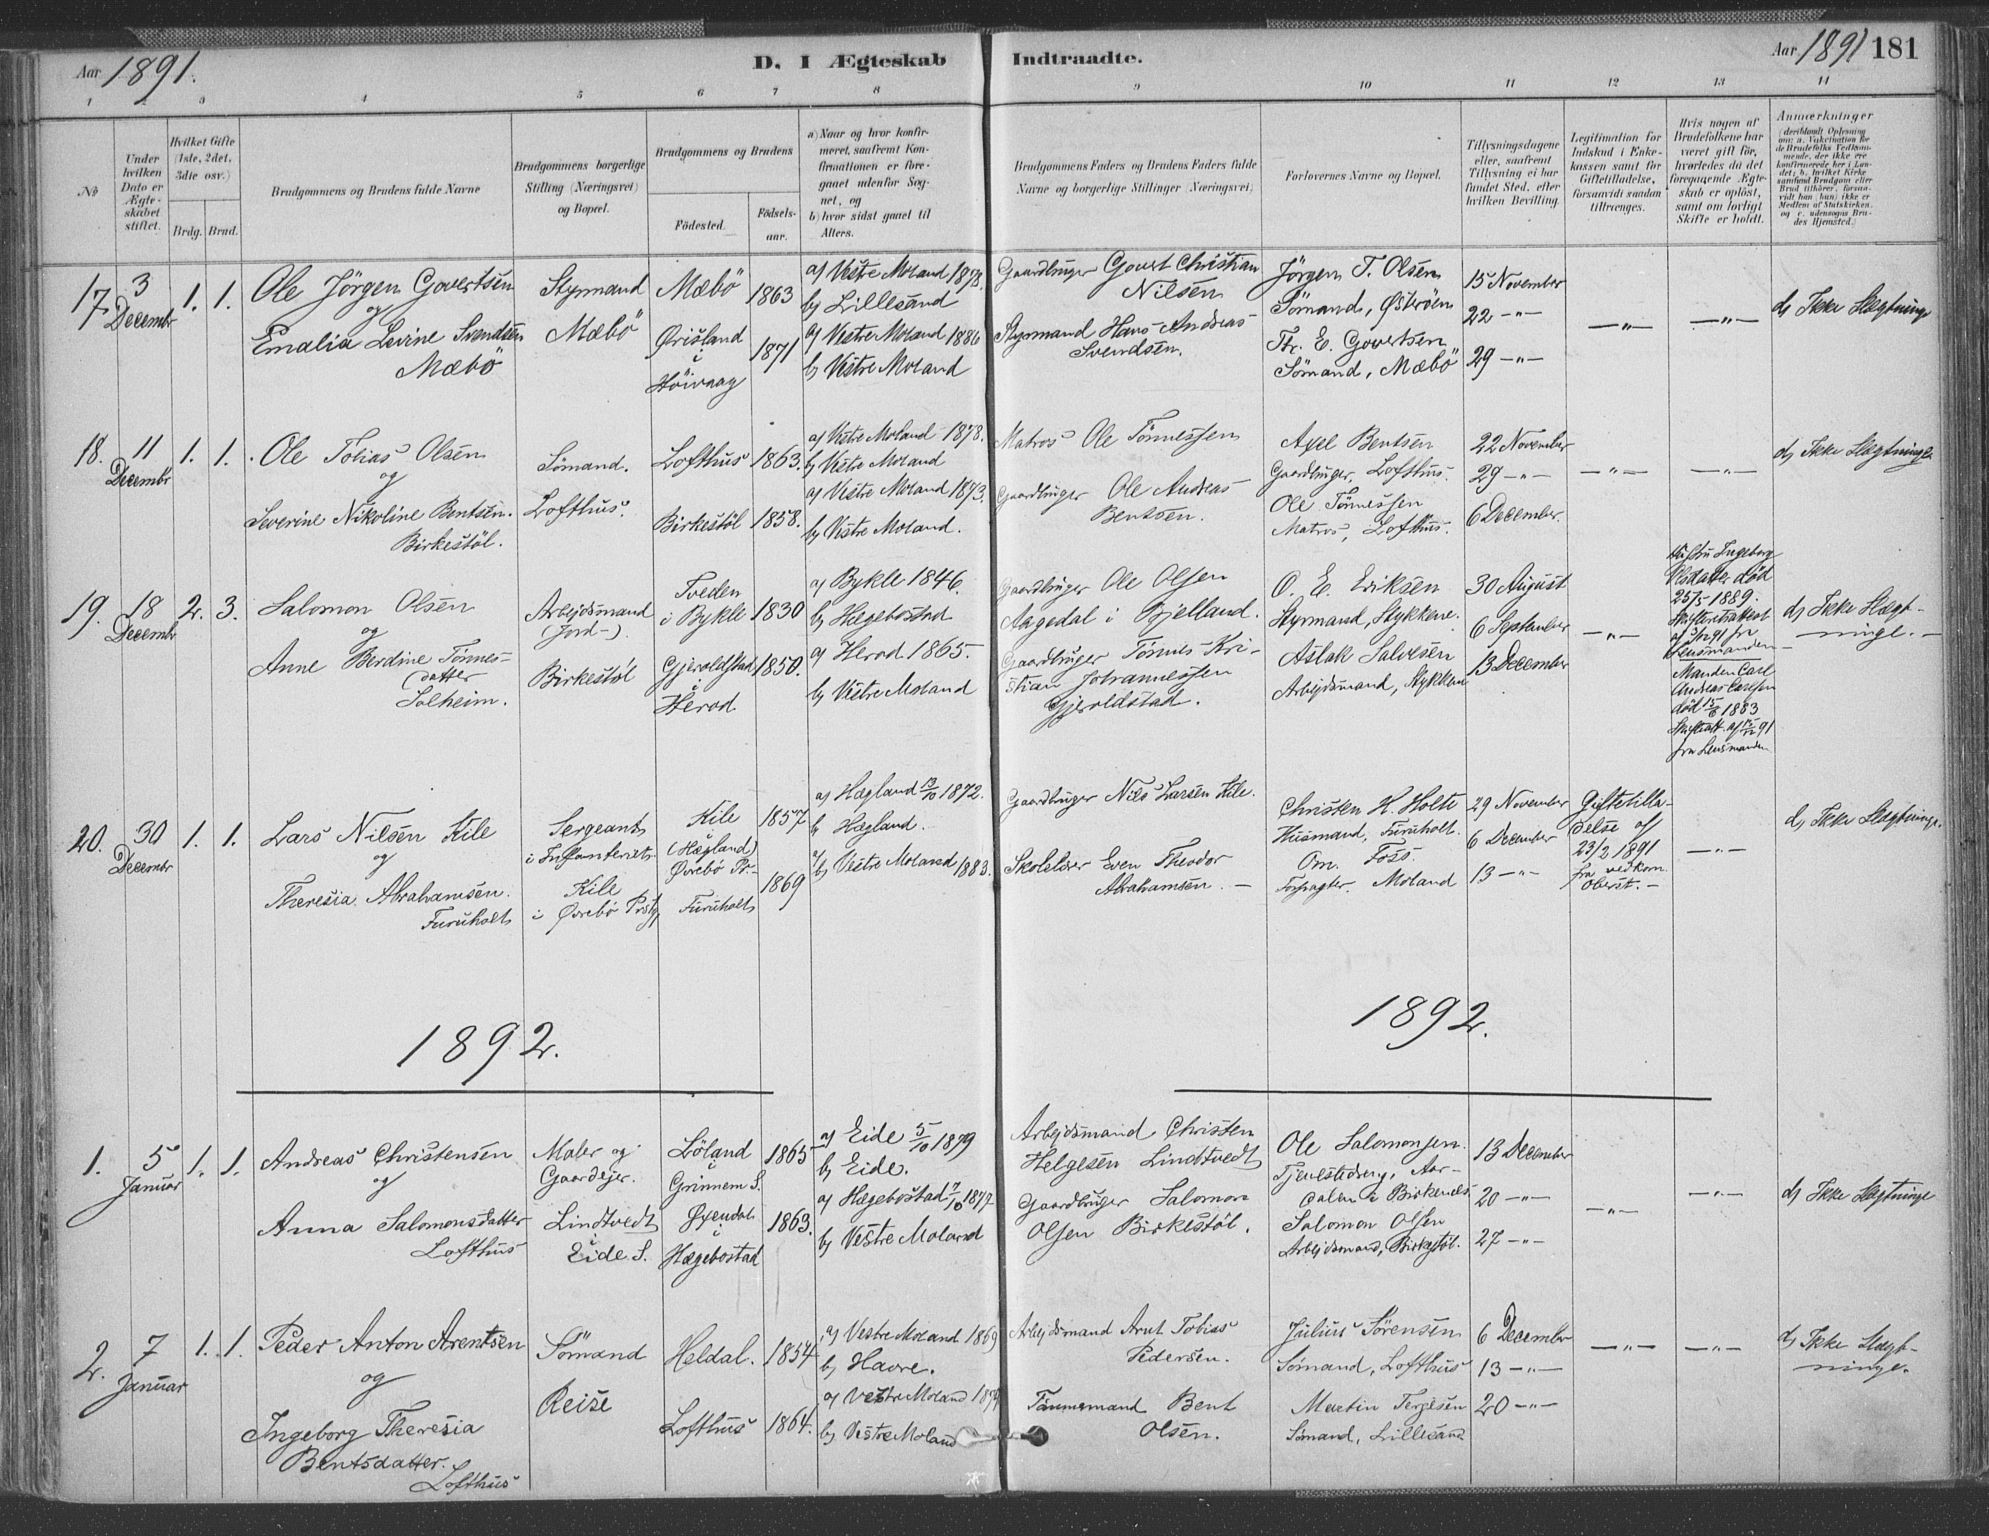 Aar 1891.
D. I Ægteskab Indtraadte.
Aar 1891 181
1 2 3 4 5 6 7 8 9 10 11 12 13 14
No
Under hvilken Dato er Ægteskabet stiftet.
Hvilket Gifte (1ste, 2det, 3die osv.)
Brdg. Brud.
Brudgommens og Brudens fulde Navne
Brudgommens borgerlige Stilling (Næringsvei) og Bopæl.
Brudgommens og Brudens
Fødested. Fødselsaar.
a) Naar og hvor konfirmeret, saafremt Konfirmationen er foregaaet udenfor Sognet, og
b) hvor sidst gaaet til Alters.
Brudgommens Faders og Brudens Faders fulde Navne og borgerlige Stillinger (Næringsvei).
Forlovernes Navne og Bopæl.
Tillysningsdagene eller, saafremt Tillysning ei har fundet Sted, efter hvilken Bevilling.
Legitimation for Indskud i Enkekassen samt for Giftetilladelse, forsaavidt saadan tiltrænges.
Hvis nogen af Brudefolkene har været gift før, hvorledes da det foregaaende Ægteskab er opløst, samt om lovligt Skifte er holdt.
Anmærkninger
(deriblandt Oplysning om: a. Vakcination for de Brudefolks Vedkommende, der ikke ere konfirmerede her i Landet; b. hvilket Kirkesamfund Brudgom eller Brud tilhører, forsaavidt han (hun) ikke er Medlem af Statskirken, og c. udensogns Brudes Hjemsted.)
17. 3 Decembr 1. 1.
Ole Jörgen Govertsen
og
Emalia Levine Svendsen
Mæbö
Styrmand
Mæbö
Mæbö 1863
Ørisland
i
Höivaag
1871
a) Vestre Moland 1878.
b) Lillesand
a) Vestre Moland 1886
b) Vestre Moland
Gaardbruger Govert Christian
Nilsen
Styrmand Hans Andreas
Svendsen.
Jörgen T. Olsen
Sömand, Østeröen
Th. E. Govertsen
Sömand, Mæbö
15 November
22 —"—
29 —"—
—"—
—"—
d) Ikke Slægtninge
18. 11 Decembr 1. 1.
Ole Tobias Olsen
og
Severine Nikoline Bentsen.
Birkestöl.
Sömand.
Lofthus.
Lofthus 1863.
Birkestöl 1858.
a) Vestre Moland 1878.
b) Vestre Moland
a) Vestre Moland 1873.
b) Vestre Moland.
Matros Ole Tönnessen
Gaardbruger Ole Andreas
Bentsen.
Axel Bentsen
Gaardbruger, Lofthus.
Ole Tönnessen
Matros, Lofthus.
22 November
29 —"—
6 December.
—"—
—"—
d) Ikke Slægtninge
19. 18 Decembr 2. 3.
Salomon Olsen
og
Anne Berdine Tönnes-
datter
Solheim.
Arbejdsmand
(Jord-).
Birkestöl
Tveden
i Bykle 1830
Gjeroldstad 1850.
i
Herad
a) Bykle 1846.
b) Hægebostad
a) Herad 1865.
b) Vestre Moland
Gaardbruger Ole Olsen
Aagedal i Bjelland.
Gaardbruger Tönnes Kri-
stian Johannessen
Gjeroldstad.
O. E. Eriksen
Styrmand, Stykkene.
Aslak Salvesen
Arbejdsmand, Stykkene
30 August
6 September
13 December
—"—
Hustru Ingeborg
Olsdatter död
25/5 1889.
Skifteattest
fra
Lensmanden
Manden Carl
Andreas Carlsen
död 1883
Skifteatt. af 91
fra Lensmanden
d) Ikke Slægt-
ninge.
20. 30 Decembr 1. 1.
Lars Nilsen Kile
og
Theresia Abrahamsen.
Furuholt
Sergeant
i Infanteriet
Kile
i Øvrebö Prstg
Kile 1857
(Hægland)
Øvrebö Pr.
Furuholt 1869
a) Hægland 13/10 1872.
b) Hægland.
a/b) Vestre Moland 1883.
Gaardbruger Nils Larsen Kile.
Skolelærer Even Theodor
Abrahamsen.
Christen H. Holte
Husmand, Furuholt.
Om. Foss.
Forpagter. Moland
29 November
6 December
13 —"—
Giftetilla-
delse af
23/2 1891
fra vedkom.
Oberst.
—"—
d) Ikke Slægtninge.
1892. 1892.
1. 5 Januar 1. 1.
Andreas Christensen
og
Anna Salomonsdatter
Lofthus
Maler og
Gaardejer.
Lindtvedt
i
Eide S.
Löland 1865
i
Grinnem S.
Øxendal 1863.
i
Hægebostad
a) Eide 5/10 1879
b) Eide.
a) Hægebostad 7/10 1877
b) Vestre Moland
Arbejdsmand Christen
Helgesen Lindtvedt
Gaardbruger Salomon
Olsen Birkestöl.
Ole Salomonsen.
Tjenestedreng, Aar-
dalen i Birkenes
Salomon Olsen
Arbejdsmand, Birkestöl.
13 December
20 —"—
27 —"—
—"—
—"—
d) Ikke Slægtninge
2. 7 Januar 1. 1.
Peder Anton Arentsen
og
Ingeborg Theresia
Bentsdatter.
Lofthus
Sömand
Reise
Heldal. 1854
Lofthus 1864.
a) Vestre Moland 1869
b) Havre.
a) Vestre Moland 1879
b) Vestre Moland
Arbejdsmand Arnt Tobias
Pedersen.
Tömmermand Bent
Olsen.
Julius Sörensen
Sömand, Lofthus
Martin Terjesen
Sömand, Lillesand
6 December
13 —"—
20 —"—
—"—
—"—
d) Ikke Slægt-
ninge.